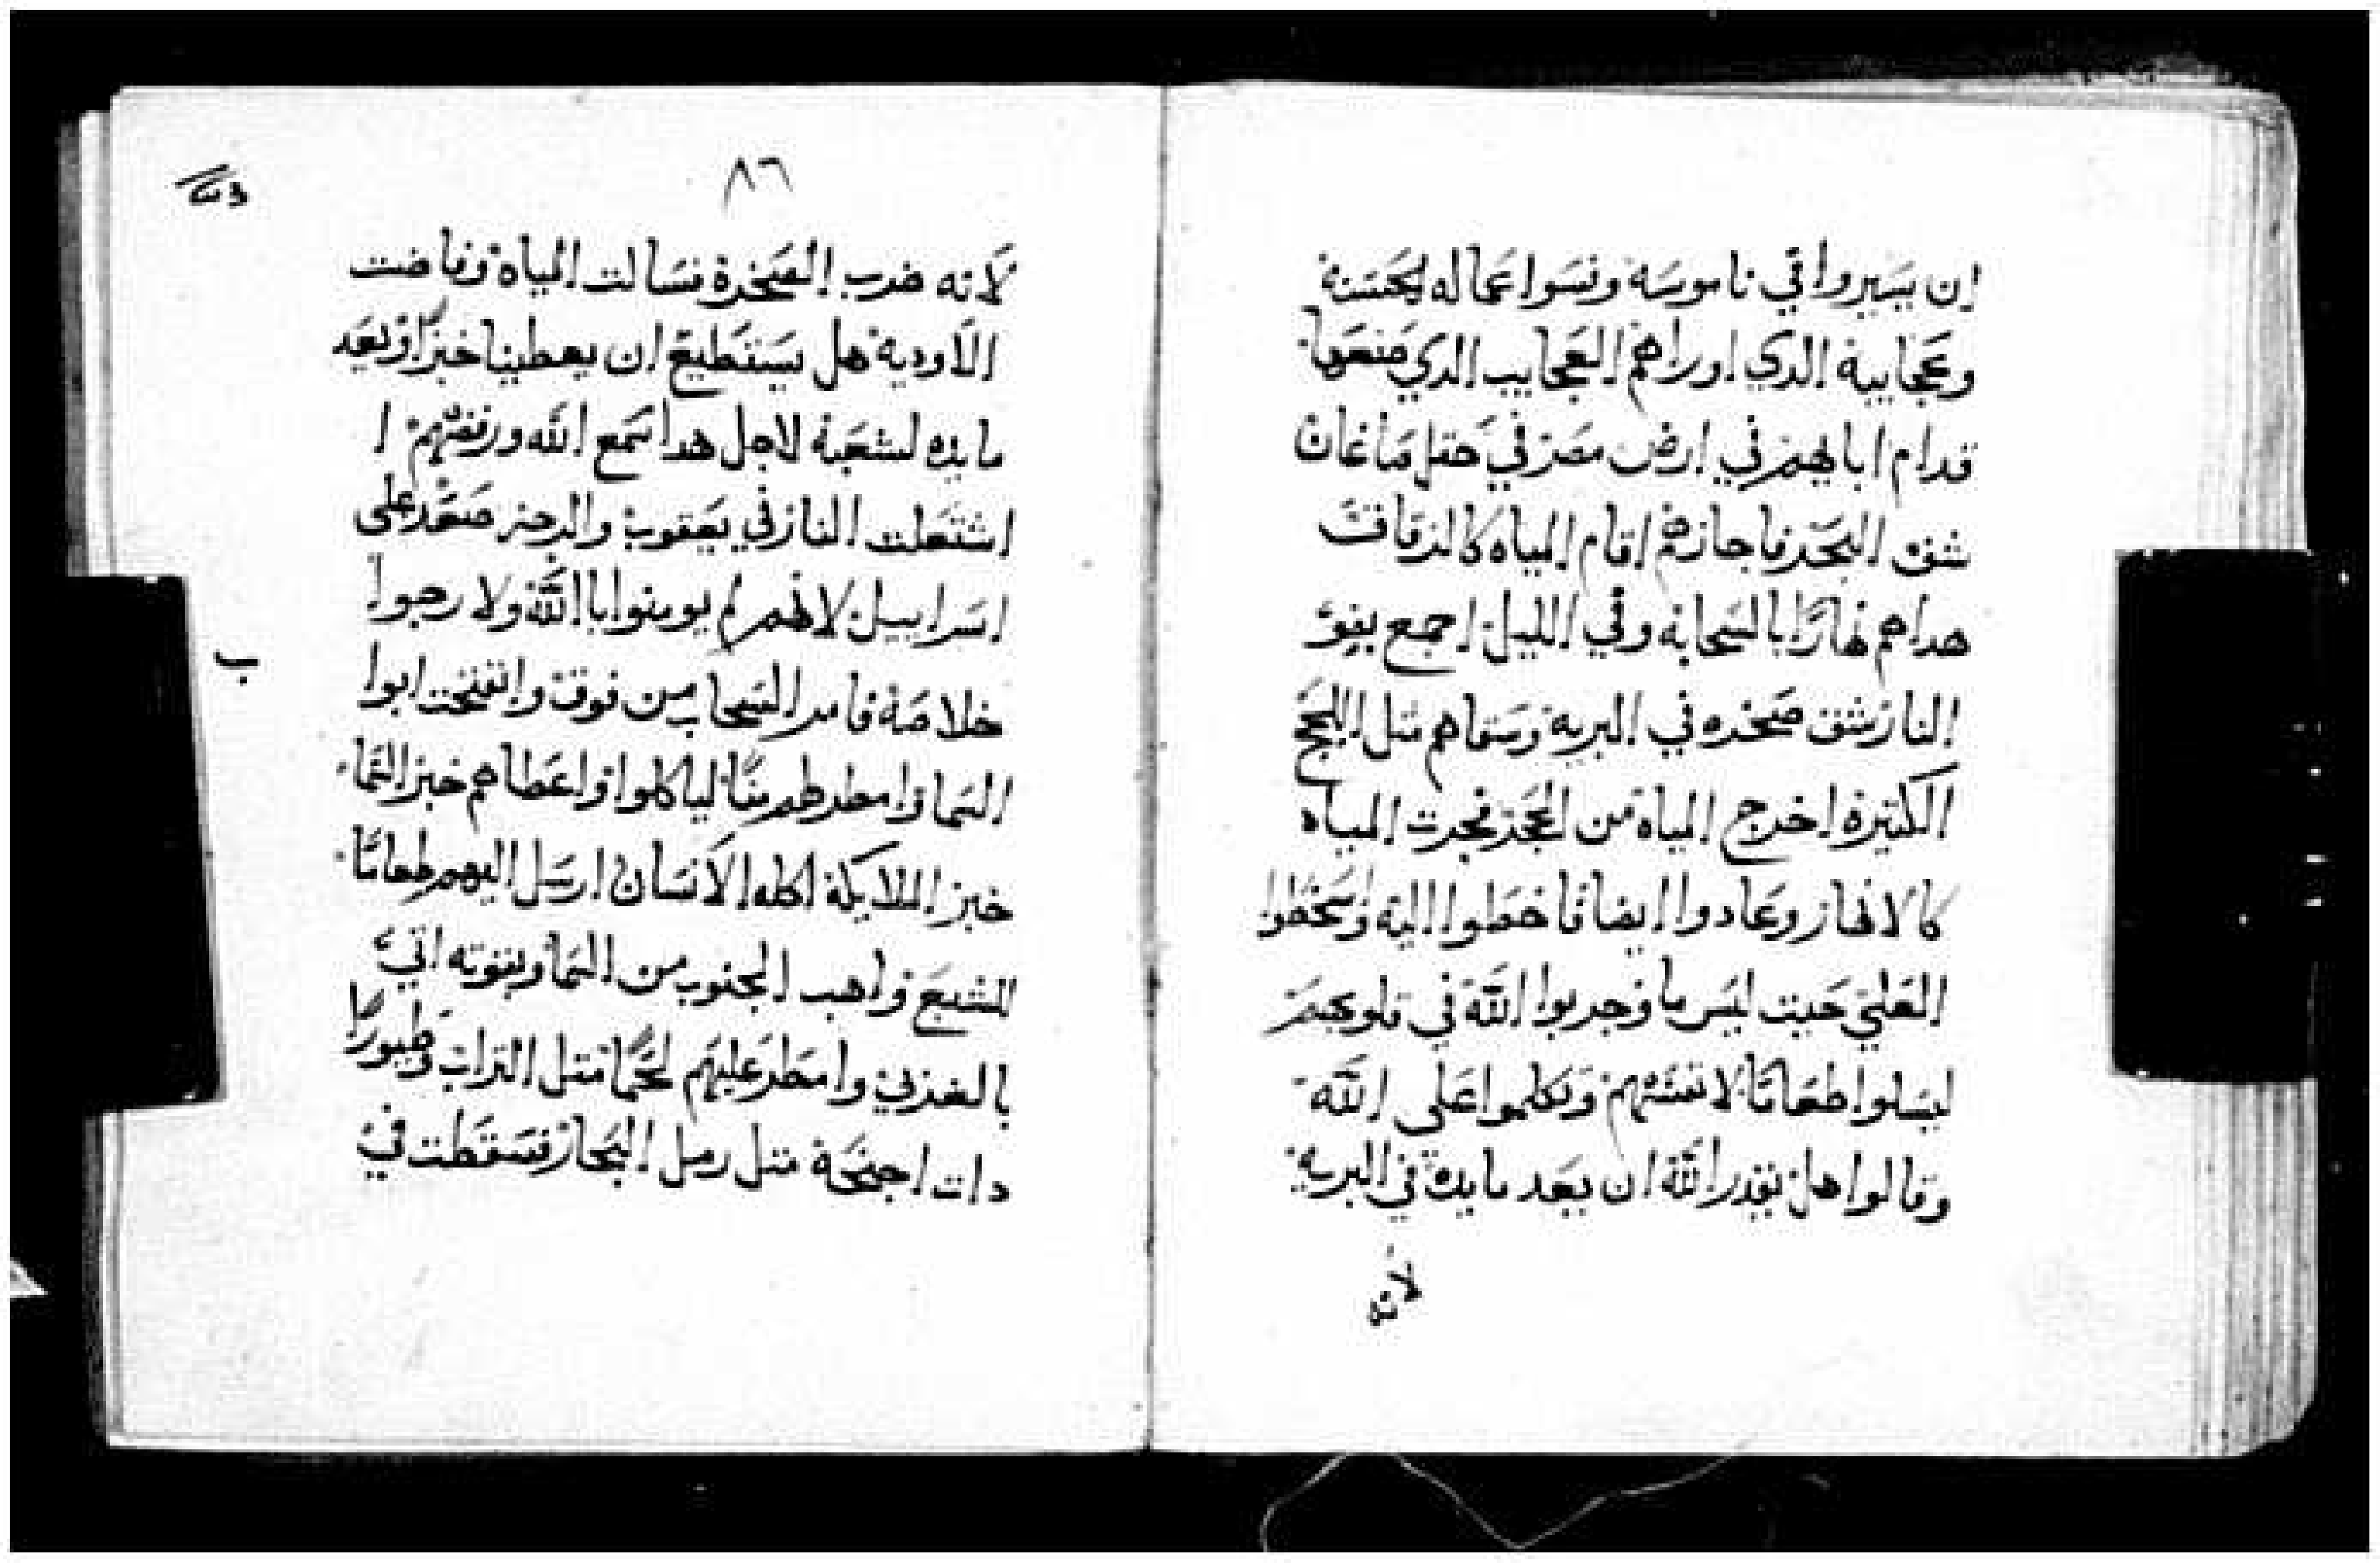 ان يسيروا في ناموسه ونسوا اعماله الحسنة
وعجايبه الدي اوراهم العجايب الدي صنعها
قدام ابايهم في ارض مصر في حقل صاغان
شق البحر فاجازهم اقام المياه كالزقاق
هداهم نهارًا بالسحابة وفي الليل اجمع بضو
النار شق صخره في البرية وسقاهم متل اللجج
الكتيرة اخرج المياه من الحجر فجرت المياه
كالانهار وعادوا ايضا فاخطوا اليه واسخطوا
العلي حيت ليس ما وجربوا الله في قلوبهم
ليسلوا طعامًا لانفسهم وتكلموا على الله
وقالوا هل يقدر الله ان يعد مايدة في البرية
لانه
٨٦
لانه ضرب الصخرة فسالت المياه وفاضت
الاودية هل يستطيع ان يعطينا خبزًا او يعد
مايده لشعبه لاجل هدا سمع الله ورفضهم ا
اشتعلت النار في يعقوب والرجز صعد على
اسراييل لانهم لم يومنوا باالله ولا رجوا
خلاصه فامر السحاب من فوق وانفتحت ابوا
ب
السما وامطر لهم منًا لياكلوا واعطاهم خبز السما
خبز الملايكة اكله الانسان ارسل اليهم طعامًا
للشبع واهب الجنوب من السما وبقوته اتي
بالغربي وامطر عليهم لحمًا متل التراب وطيورًا
دات اجنحة متل رمل البحار فسقطت في